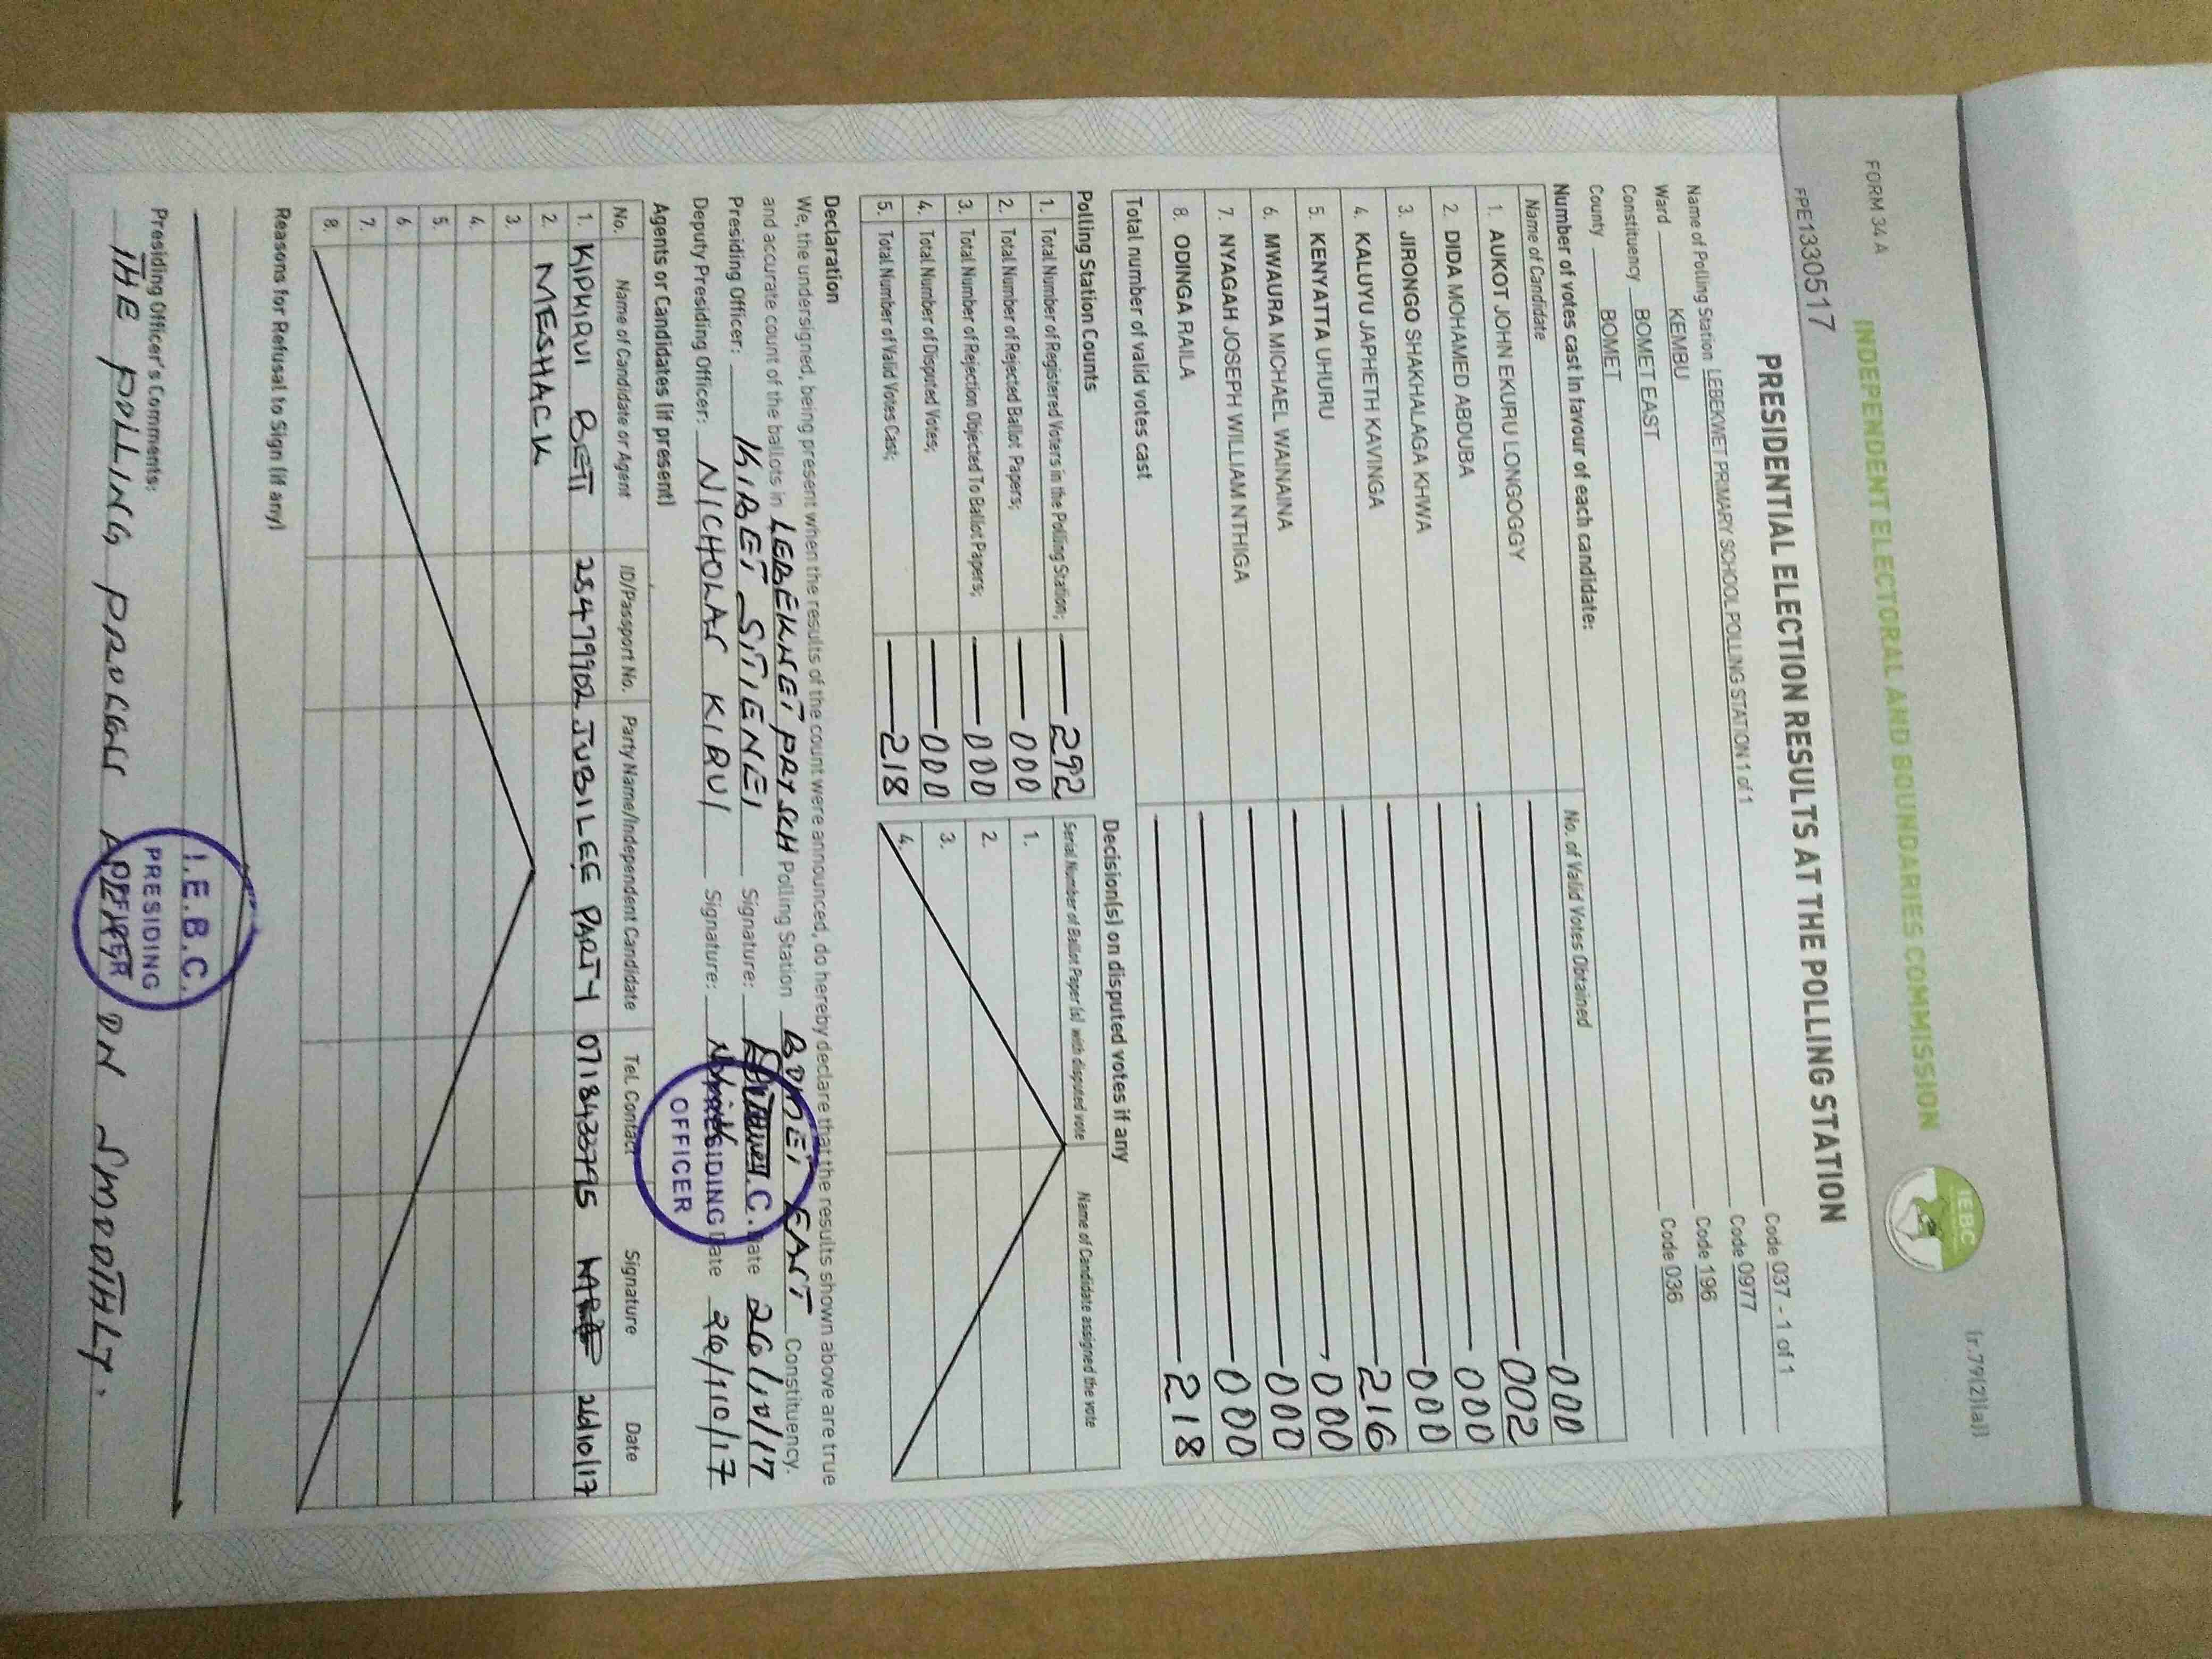 FORM 34 A
(r.79(2)(a))
INDEPENDENT ELECTORAL AND BOUNDARIES COMMISSION
IEBC
PPE1330517
PRESIDENTIAL ELECTION RESULTS AT THE POLLING STATION
Name of Polling Station LEBEKWET PRIMARY SCHOOL POLLING STATION 1 of 1 Code 037 - 1 of 1
Ward KEMBU Code 0977
Constituency BOMET EAST Code 196
County BOMET Code 036
Number of votes cast in favour of each candidate:
Name of Candidate No. of Valid Votes Obtained
1. AUKOT JOHN EKURU LONGOGGY 000
2. DIDA MOHAMED ABDUBA 002
3. JIRONGO SHAKHALAGA KHWA 000
4. KALUYU JAPHETH KAVINGA 000
5. KENYATTA UHURU 216
6. MWAURA MICHAEL WAINAINA 000
7. NYAGAH JOSEPH WILLIAM NTHIGA 000
8. ODINGA RAILA 000
Total number of valid votes cast 218
Polling Station Counts
1. Total Number of Registered Voters in the Polling Station; 292
2. Total Number of Rejected Ballot Papers; 000
3. Total Number of Rejection Objected To Ballot Papers; 000
4. Total Number of Disputed Votes; 000
5. Total Number of Valid Votes Cast; 218
Decision(s) on disputed votes if any
Serial Number of Ballot Paper (s) with disputed vote Name of Candidate assigned the vote
1.
2.
3.
4.
Declaration
We, the undersigned, being present when the results of the count were announced, do hereby declare that the results shown above are true
and accurate count of the ballots in LEBEKWET PRY SCH Polling Station BOMET EAST Constituency.
Presiding Officer: KIBET SITIENEI Signature: Date 26/10/17
Deputy Presiding Officer: NICHOLAS KIRUI Signature: Date 26/10/17
I.E.B.C.
PRESIDING
OFFICER
Agents or Candidates (if present)
No. Name of Candidate or Agent ID/Passport No. Party Name/Independent Candidate Tel. Contact Signature Date
1. KIPKIRUI BETT 25479902 JUBILEE PARTY 0718433795 26/10/17
2. MESHACK
3.
4.
5.
6.
7.
8.
Reasons for Refusal to Sign (if any)
I.E.B.C.
PRESIDING
OFFICER
Presiding Officer's Comments:
THE POLLING PROCESS WENT ON SMOOTHLY.